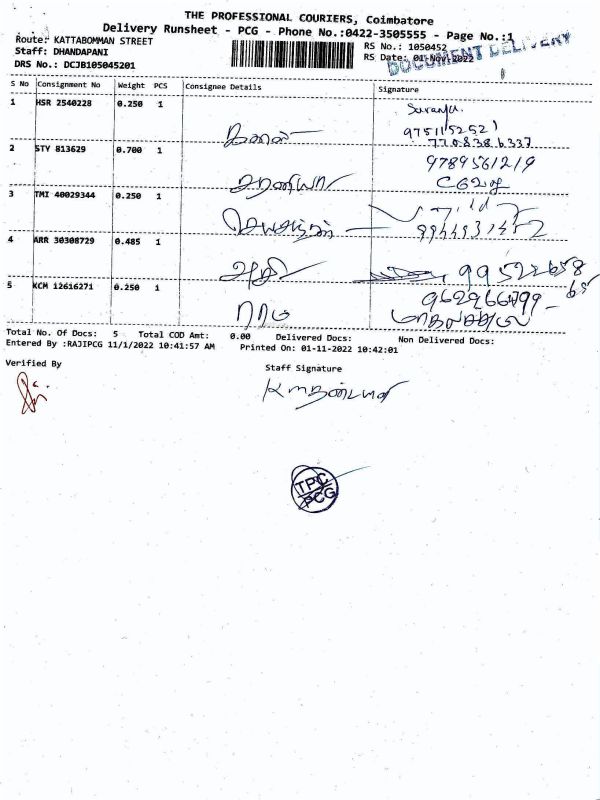 THE PROFESSIONAL COURIERS, Coimbatore
Delivery Runsheet - PCG - Phone No.:0422-3505555 - Page No.:1
Route: KATTABOMMAN STREET
RS No.: 1050452
Staff: DHANDAPANI
RS Date: 01-Nov-2022
DOCUMENT DELIVERY
DRS No.: DCJB105045201
S No Consignment No Weight PCS Consignee Details Signature
1 HSR 2540228 0.250 1
9751152521
7708386337
2 STY 813629 0.700 1 சரணியா 9789561219
3 TMI 40029344 0.250 1
4 ARR 30308729 0.485 1
5 KCM 12616271 0.250 1 ராமு
Total No. Of Docs: 5 Total COD Amt: 0.00 Delivered Docs: Non Delivered Docs:
Entered By :RAJIPCG 11/1/2022 10:41:57 AM Printed On: 01-11-2022 10:42:01
Verified By
Staff Signature
TPC
PCG